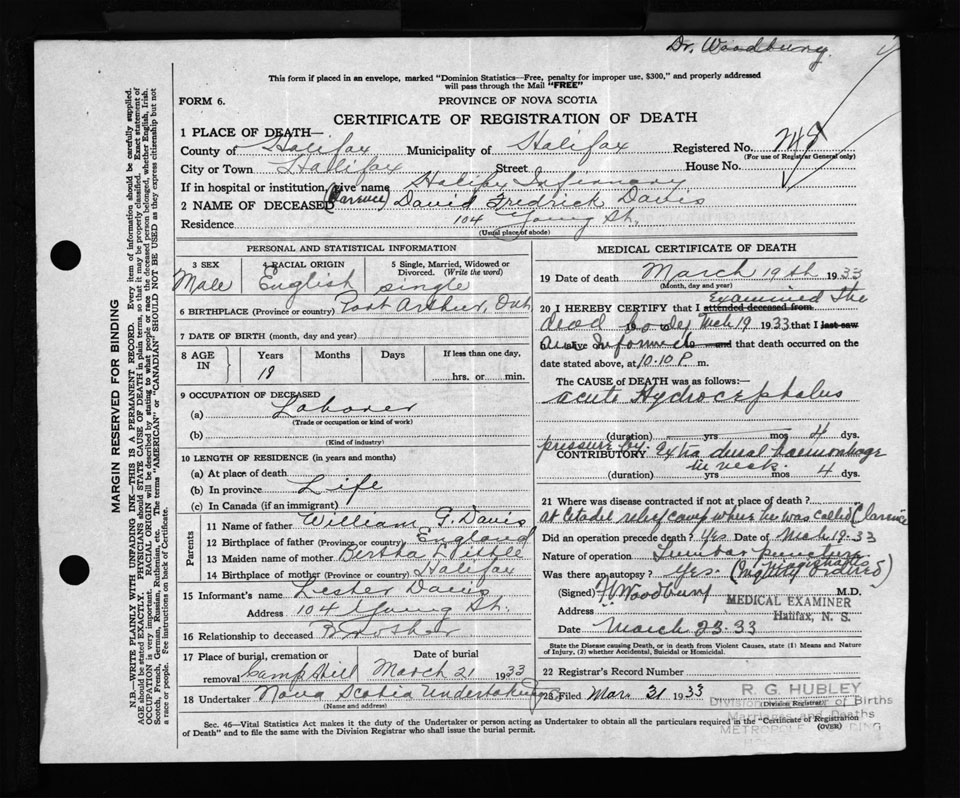 Dr. Woodbury
This form if placed in an envelope, marked "Dominion Statistics—Free, penalty for improper use, $300," and properly addressed
will pass through the Mail "FREE"
FORM 6.
PROVINCE OF NOVA SCOTIA
CERTIFICATE OF REGISTRATION OF DEATH
1 PLACE OF DEATH—
County of Halifax Municipality of Halifax Registered No. 248
(For use of Registrar General only)
City or Town Halifax Street House No.
If in hospital or institution, give name Halifax Infirmary
2 NAME OF DECEASED (Clarence) David Fredrick Davis
Residence 104 Young St.
(Usual place of abode)
MARGIN RESERVED FOR BINDING
N.B.—WRITE PLAINLY WITH UNFADING INK—THIS IS A PERMANENT RECORD. Every item of information should be carefully supplied.
AGE should be stated EXACTLY. PHYSICIANS should STATE CAUSE OF DEATH in plain terms, so that it may be properly classified. Exact statement of
OCCUPATION is very important. RACIAL ORIGIN will be described by stating to what people or race the deceased person belonged, whether English, Irish,
Scotch, French, German, Russian, Ruthenian, etc. The terms "AMERICAN" or "CANADIAN" SHOULD NOT BE USED as they express citizenship but not
a race or people. See instructions on back of Certificate.
PERSONAL AND STATISTICAL INFORMATION
3 SEX
Male
4 RACIAL ORIGIN
English
5 Single, Married, Widowed or
Divorced. (Write the word)
single
6 BIRTHPLACE (Province or country) Port Arthur, Ont
7 DATE OF BIRTH (month, day and year)
8 AGE IN Years Months Days If less than one day,
19
hrs. or min.
9 OCCUPATION OF DECEASED
(a) Laborer
(Trade or occupation or kind of work)
(b)
(Kind of industry)
10 LENGTH OF RESIDENCE (in years and months)
(a) At place of death
(b) In province Life
(c) In Canada (if an immigrant)
Parents
11 Name of father William G. Davis
12 Birthplace of father (Province or country) England
13 Maiden name of mother Bertha
14 Birthplace of mother (Province or country) Halifax
15 Informant's name Lester Davis
Address 104 Young St.
16 Relationship to deceased Brother
17 Place of burial, cremation or Date of burial
removal Camp Hill March 21 1933
18 Undertaker Nova Scotia Undertaking
(Name and address)
MEDICAL CERTIFICATE OF DEATH
19 Date of death March 19th 1933
(Month, day and year)
20 I HEREBY CERTIFY that I attended deceased from Examined the
dead body Mch 19 1933 that I last saw
alive Informed and that death occurred on the
date stated above, at 10.10 P. m.
The CAUSE of DEATH was as follows:—
acute Hydrocephalus
(duration) yrs mos 4 dys.
pressure by
CONTRIBUTORY. Extra dural haemorrhage
in neck.
(duration) yrs mos 4 dys.
21 Where was disease contracted if not at place of death?
at Citadel relief camp where he was called Clarence
Did an operation precede death? Yes Date of Mch 19-33
Nature of operation Lumbar puncture
Was there an autopsy? Yes. (Magistrate's ordered)
(Signed) Woodbury M.D.
Address MEDICAL EXAMINER
Halifax, N. S.
Date March 23-33
State the Disease causing Death, or in deaths from Violent Causes, state (1) Means and Nature
of Injury, (2) whether Accidental, Suicidal or Homicidal.
22 Registrar's Record Number
23 Filed Mar 21 1933
(Division Registrar)
R. G. HUBLEY
Division of Births
and Deaths
METROPOLE
Sec. 46—Vital Statistics Act makes it the duty of the Undertaker or person acting as Undertaker to obtain all the particulars required in the "Certificate of Registration
of Death" and to file the same with the Division Registrar who shall issue the burial permit.
(OVER)